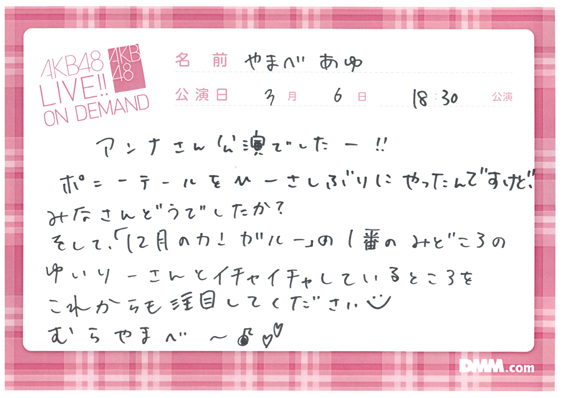 AKB48
LIVE!!
ON DEMAND
AKB
48
名前 やまべ あゆ
公演日 3月 6日 18:30 公演
アンナさん公演でしたー!!
ポニーテールをひーさしぶりにやったんですけど、
みなさんどうでしたか?
そして、「12月のカンガルー」の1番のみどころの
ゆいりーさんとイチャイチャしているところを
これからも注目してください
むらやまべ〜♪♡♡
DMM.com